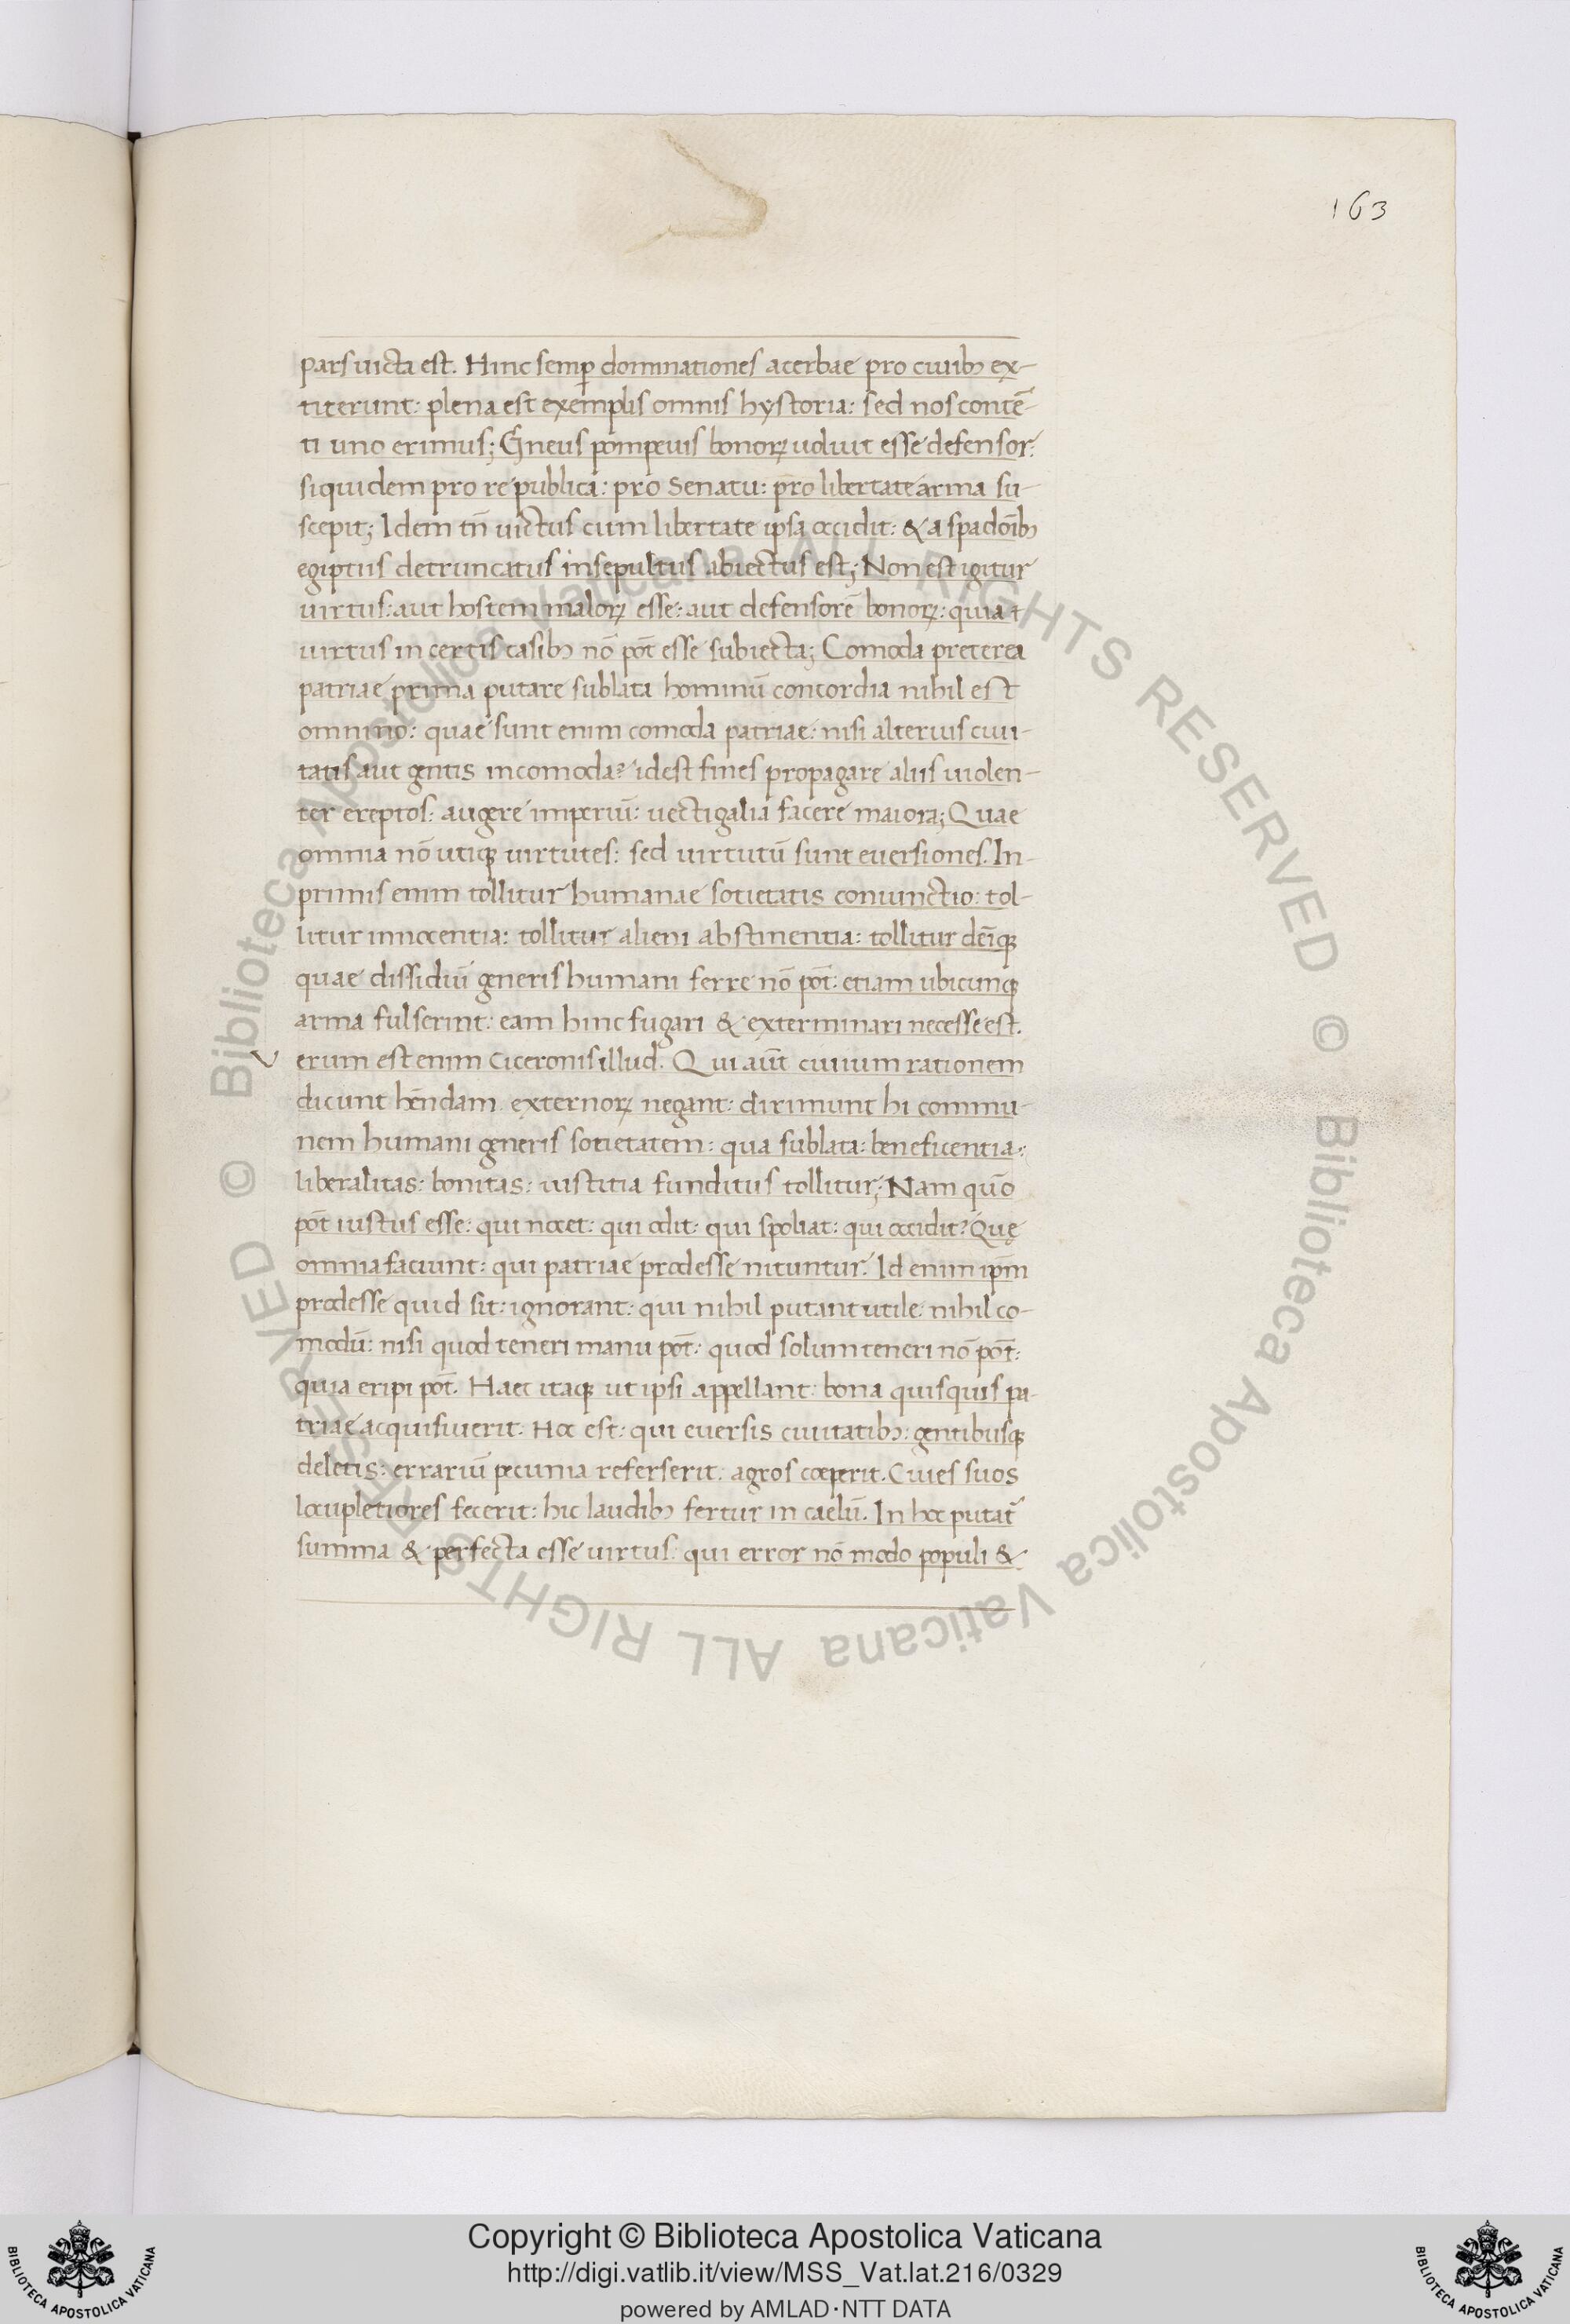 163
pars uicta est. Hinc semꝑ dominationes acerbae pro ciuibꝫ ex-
titerunt: plena est exemplis omnis hystoria: sed nos contē-
ti uno erimus; Gneus pompeius bonoꝝ uoluit esse defensor:
siquidem pro re publica: pro Senatu: pro libertate arma su-
scepit; Idem tn̄ uictus cum libertate ipsa occidit: & a spadoībꝫ
egiptiis detruncatus insepultus abiectus est; Non est igitur
uirtus: aut hostem maloꝝ esse: aut defensorē bonoꝝ: quia
uirtus incertis casibꝫ nō pōt esse subiecta; Comoda preterea
patriae prima putare sublata hominū concordia nihil est
omnino: quae sunt enim comoda patriae: nisi alterius ciui-
tatis aut gentis incomoda? id est fines propagare aliis uiolen-
ter ereptos: augere imperiū: uectigalia facere maiora; Quae
omnia nō utiqꝫ uirtutes: sed uirtutū sunt euersiones. In-
primis enim tollitur humanae sotietatis coniunctio: tol-
litur innocentia: tollitur alieni abstinentia: tollitur deīqꝫ
quae dissidiū generis humani ferre nō pōt: etiam ubicunqꝫ
arma fulserint: eam hinc fugari & exterminari necesse est.
v erum est enim Ciceronis illud. Qui aūt ciuium rationem
dicunt hēndam externoꝝ negant: dirimunt hi commu-
nem humani generis sotietatem: qua sublata: beneficentia:
liberalitas: bonitas: iustitia funditus tollitur; Nam quō
pōt iustus esse: qui nocet: qui odit: qui spoliat: qui occidit? Quę
omnia faciunt: qui patriae prodesse nituntur. Id enim ipm̄
prodesse quid sit: ignorant: qui nihil putant utile: nihil co-
modū: nisi quod teneri manu pōt: quod solum teneri nō pōt:
quia eripi pōt. Haec itaqꝫ ut ipsi appellant: bona quisquis pa-
triae acquisiuerit. Hoc est: qui euersis ciuitatibꝫ: gentibusqꝫ
deletis: errariū pecunia referserit: agros coeperit. Ciues suos
locupletiores fecerit: hic laudibꝫ fertur in caelū. In hoc putat᷑
summa & perfecta esse uirtus: qui error nō modo populi &
© Biblioteca Apostolica Vaticana ALL RIGHTS RESERVED
© Biblioteca Apostolica Vaticana ALL RIGHTS RESERVED
Copyright © Biblioteca Apostolica Vaticana
http://digi.vatlib.it/view/MSS_Vat.lat.216/0329
powered by AMLAD·NTT DATA
BIBLIOTECA APOSTOLICA VATICANA
BIBLIOTECA APOSTOLICA VATICANA